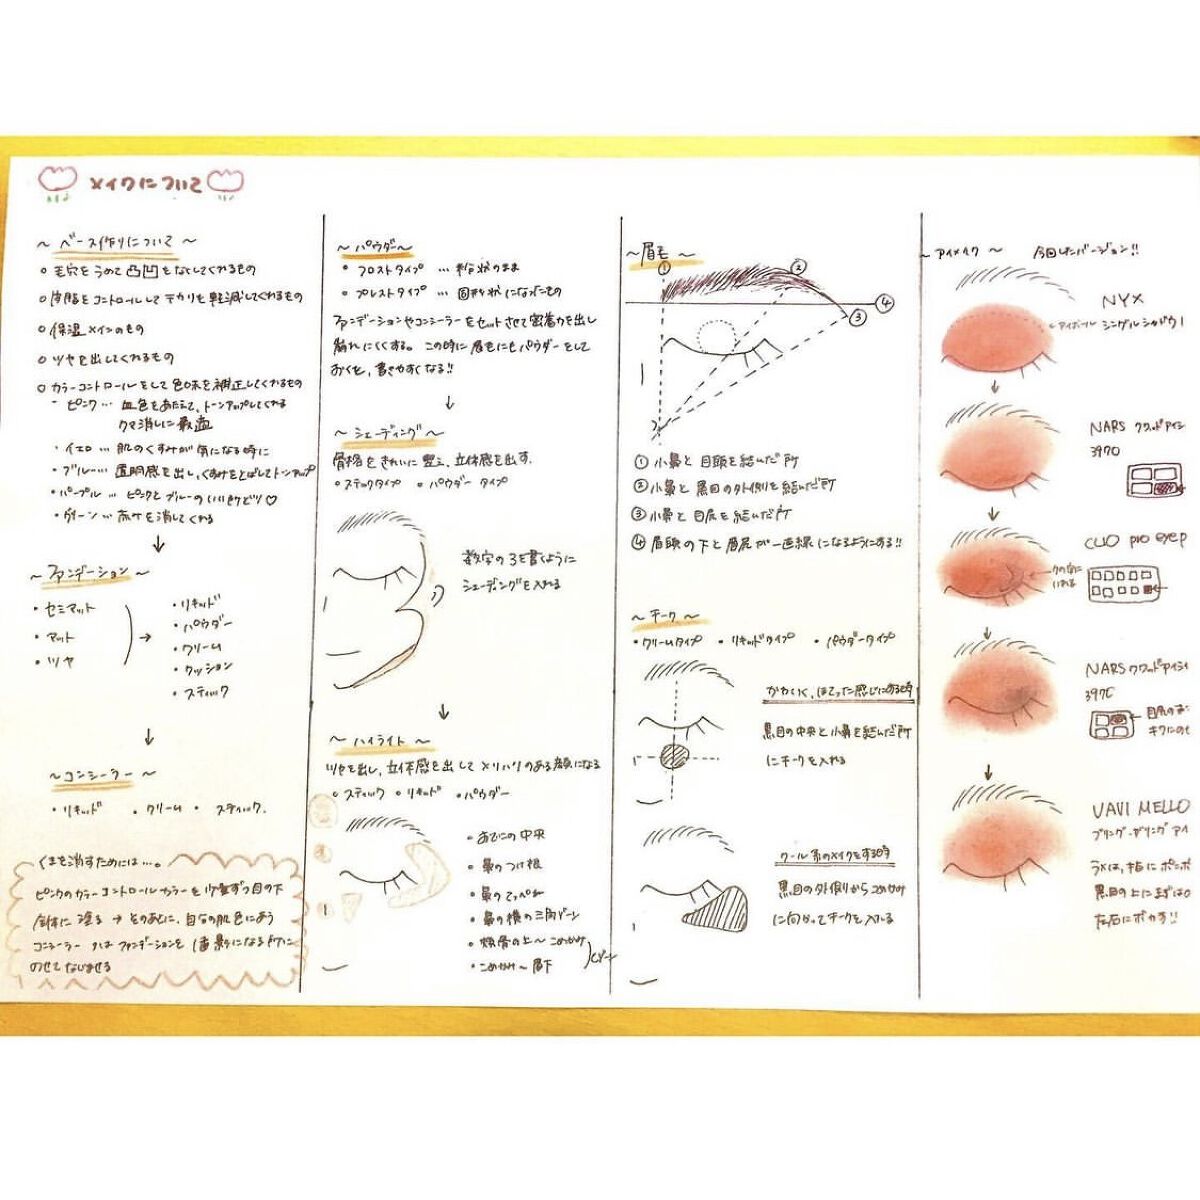 メイクについて
～ ベース作りについて ～
○ 毛穴をうめて凸凹をなくしてくれるもの
○ 皮脂をコントロールしてテカリを軽減してくれるもの
○ 保湿メインのもの
○ ツヤを出してくれるもの
○ カラーコントロールをして色味を補正してくれるもの
・ピンク… 血色をあたえて、トーンアップしてくれる
クマ消しに最適
・イエロ … 肌のくすみが気になる時に
・ブルー… 透明感を出し、くすみをとばしてトーンアップ
・パープル … ピンクとブルーのいいとこどり♡
・グリーン … 赤みを消してくれる
↓
～ ファンデーション ～
・セミマット
・マット
・ツヤ
→
・リキッド
・パウダー
・クリーム
・クッション
・スティック
↓
～コンシーラー ～
・リキッド ・クリーム ・スティック.
くまを消すためには…。
ピンクのカラーコントロールカラーを少量ずつ目の下
全体に塗る → そのあとに、自分の肌色にあう
コンシーラー 又は ファンデーションを 1番影になる所に
のせてなじませる
～ パウダー～
・フロストタイプ … 粉状のまま
・プレストタイプ … 固形状になったもの
ファンデーションやコンシーラーをセットさせて密着力を出し
崩れにくくする。この時に眉毛にもパウダーをして
おくと、書きやすくなる!!
↓
～ シェーディング ～
骨格をきれいに整え、立体感を出す.
・スティックタイプ ・パウダータイプ
数字の3を書くように
シェーディングを入れる
↓
～ ハイライト ～
ツヤを出し、立体感を出してメリハリのある顔になる
・スティック ・リキッド ・パウダー
・おでこの中央
・鼻のつけ根
・鼻のてっぺん
・鼻の横の三角ゾーン
・頬骨の上～こめかみ
・こめかみ～眉下
Cゾーン
～眉毛～
① ② ③ ④
① 小鼻と目頭を結んだ所
② 小鼻と黒目の外側りを結んだ所
③ 小鼻と目尻を結んだ所
④ 眉頭の下と眉尻が一直線になるようにする!!
～ チーク ～
・クリームタイプ ・リキッドタイプ ・パウダータイプ
かわいく、ほてった感じにする時
黒目の中央と小鼻を結んだ所
にチークを入れる
クール系のメイクをする時
黒目の外側りからこめかみ
に向かってチークを入れる
～ アイメイク ～ 今回したバージョン!!
NYX
シングルシャドウ1
アイホール
↓
NARS クワッドアイシ
3970
↓
CLIO pro eye p
クの字に
いれる
↓
NARSクワッドアイシ
397
目尻の
↓
UAVI MELLO
ブリング・ザリング アイ
ラメは、指にポンポ
黒目の上にまずは
左右にボカす!!